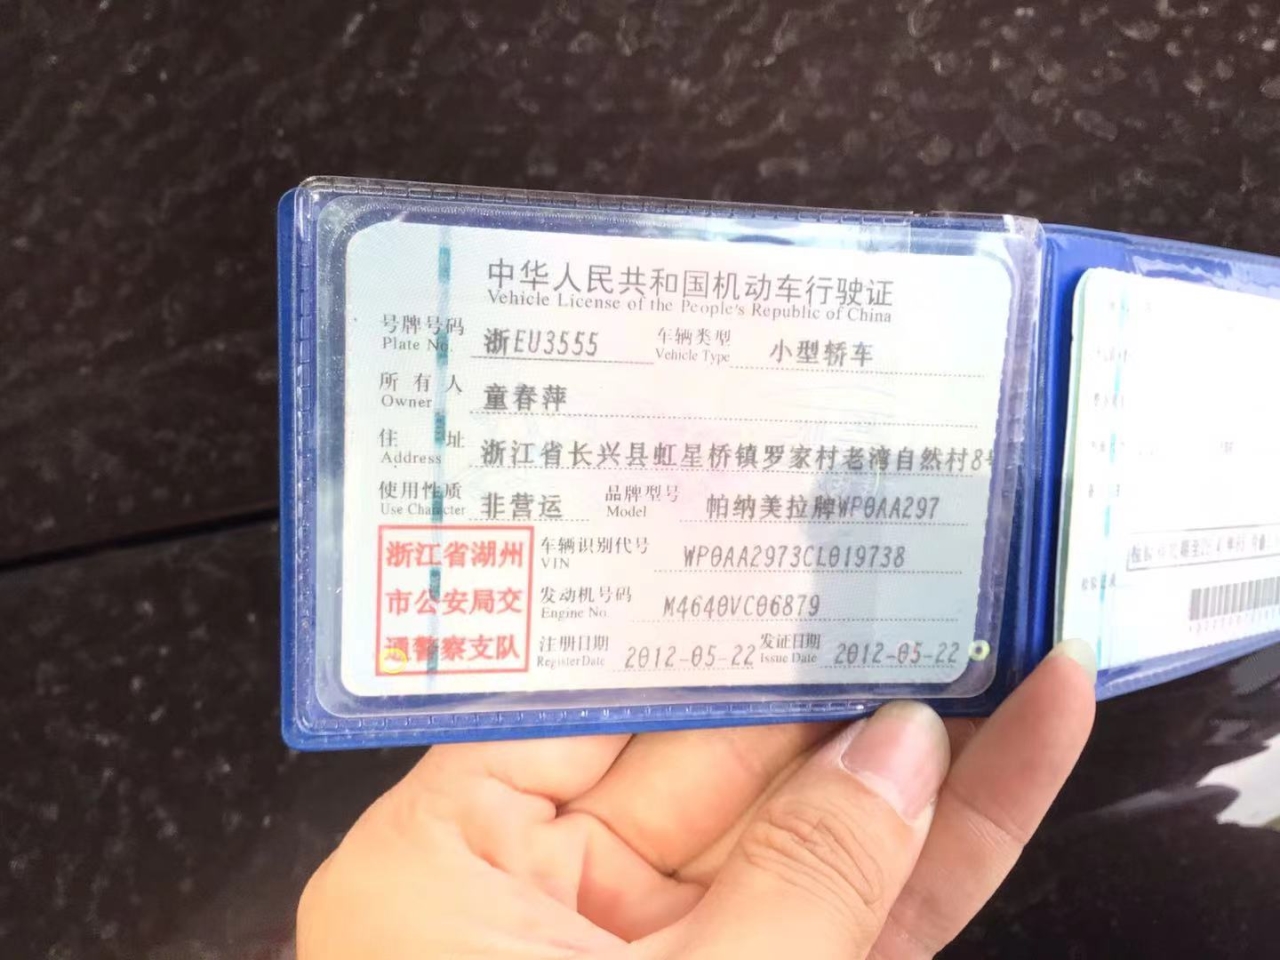 中华人民共和国机动车行驶证
Vehicle License of the People's Republic of China
号牌号码 浙EU3555 车辆类型 小型轿车
Plate No. Vehicle Type
所有人 童春萍
Owner
住址 浙江省长兴县虹星桥镇罗家村老湾自然村8号
Address
使用性质 非营运 品牌型号 帕纳美拉牌WP0AA297
Use Character Model
浙江省湖州
市公安局交
通警察支队
车辆识别代号 WP0AA2973CL019738
VIN
发动机号码 M4640VC06879
Engine No.
注册日期 2012-05-22 发证日期 2012-05-22
Register Date Issue Date